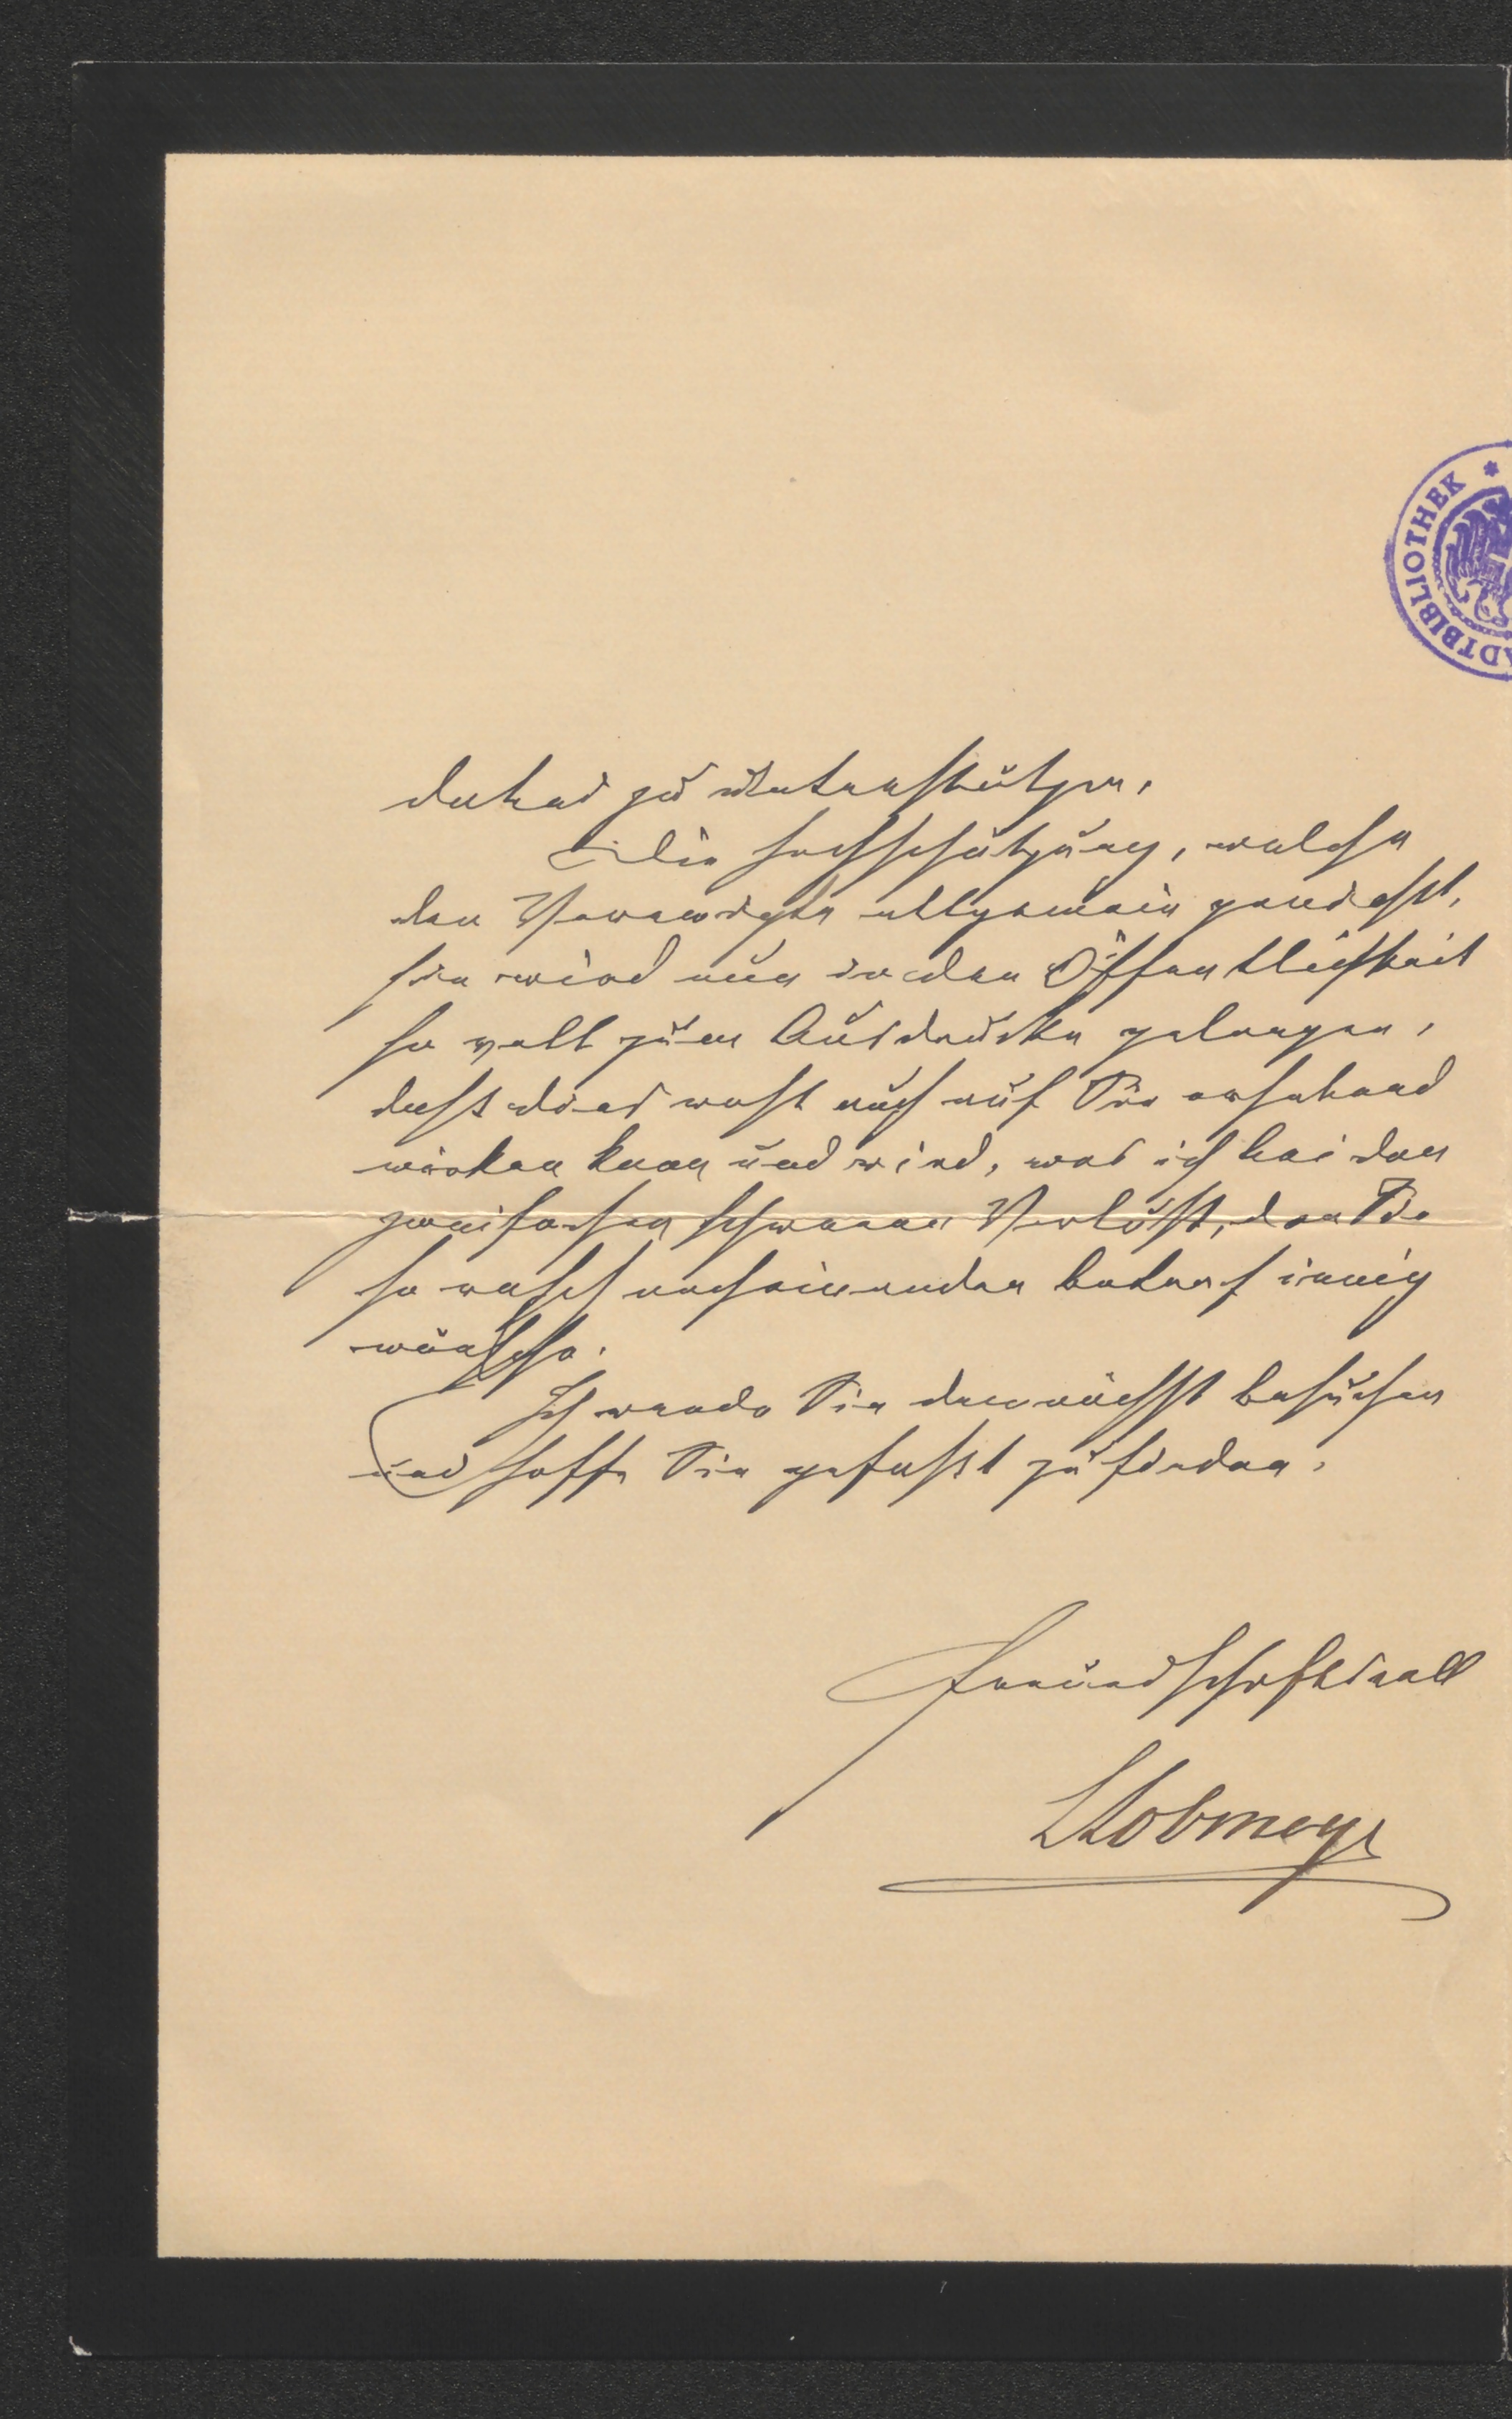 STADTBIBLIOTHEK *
zu unterstützen.
Die Hochschätzung, welche
der Verewigte allgemein genießt,
sie wird nun in der Öffentlichkeit
so voll zum Ausdrucke gelangen,
daß dies wohl auch auf Sie erhebend
wirken kann und wird, was ich bei dem
zweifachen schweren Verlust, der Sie
so rasch nacheinander betraf innig
wünsche.
Ich werde Sie demnächst besuchen
und hoffe Sie gefaßt zu finden.
Freundschaftsvoll
LLobmeyr